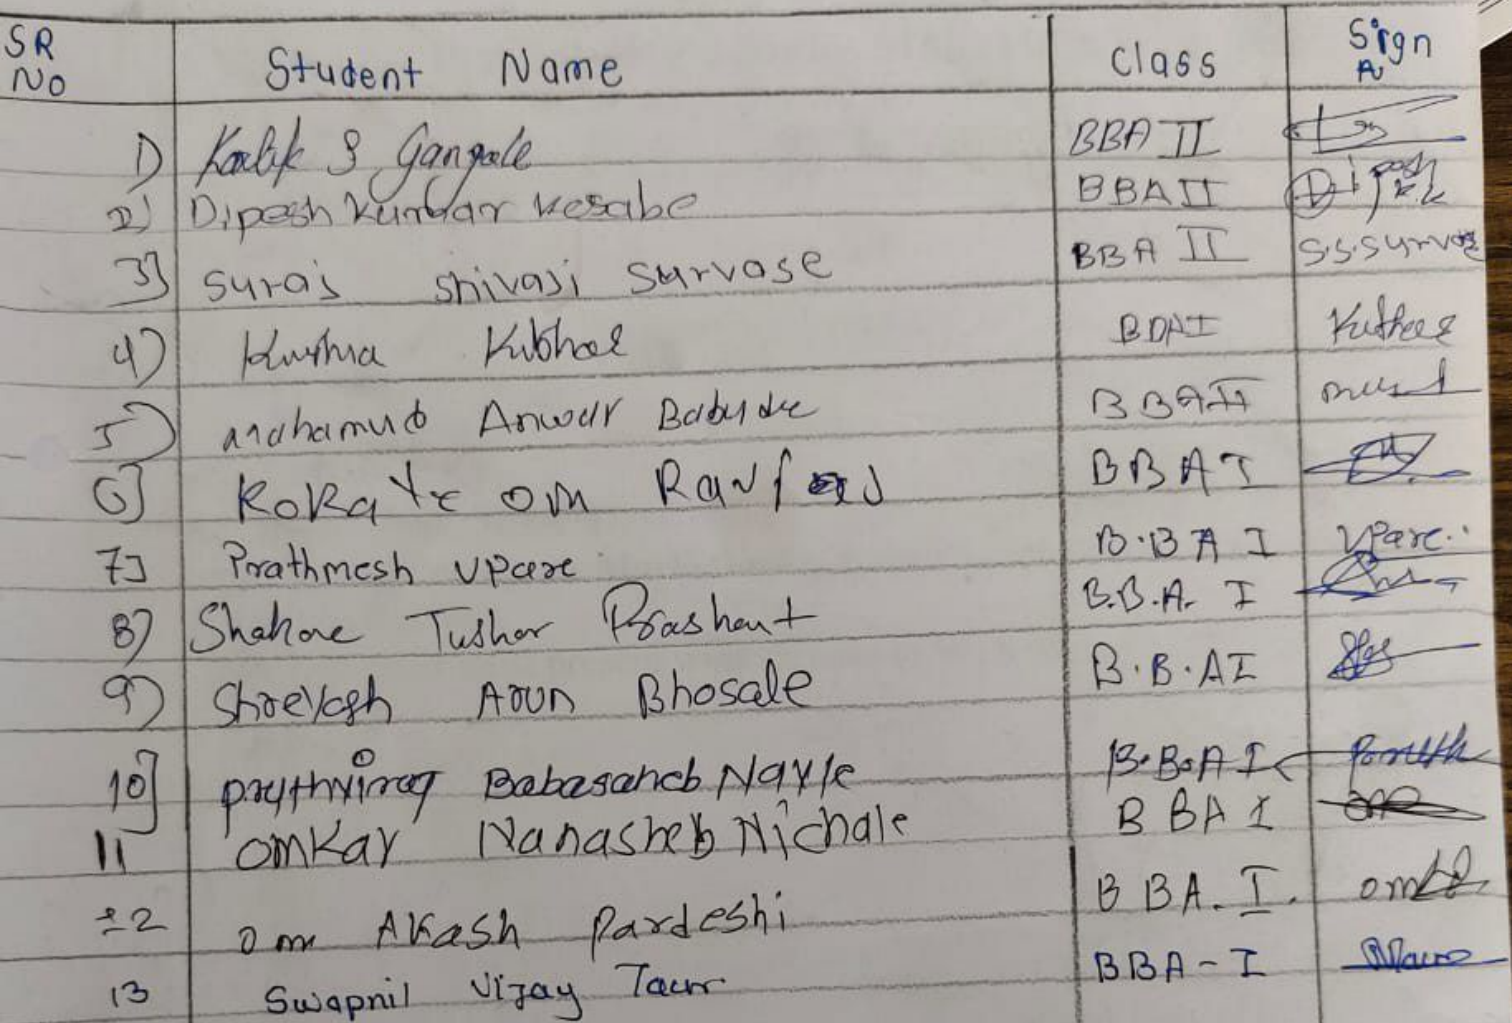 SR No Student Name Class Sign
1) Kartik S Gangole BBA II
2) Dipesh Kumar Kesabe BBA II Dipesh
3] Suraj Shivaji Survase BBA II S.S.Survase
4) Kibhae BBA I
5) Mahamud Anwar BBA II
6] Kokate Om BBA I
7] Prathmesh Upare B.B A I Upare.
8) Shahane Tushar Prashant B.B.A. I
9) Shreyash Arun Bhosale B.B.A I
10] Babasaheb Nayle B.B.A I
11 Omkar Nanasheb Nichale B BA I
12 Om Akash Pardeshi B BA. I.
13 Swapnil Vijay Taur BBA - I